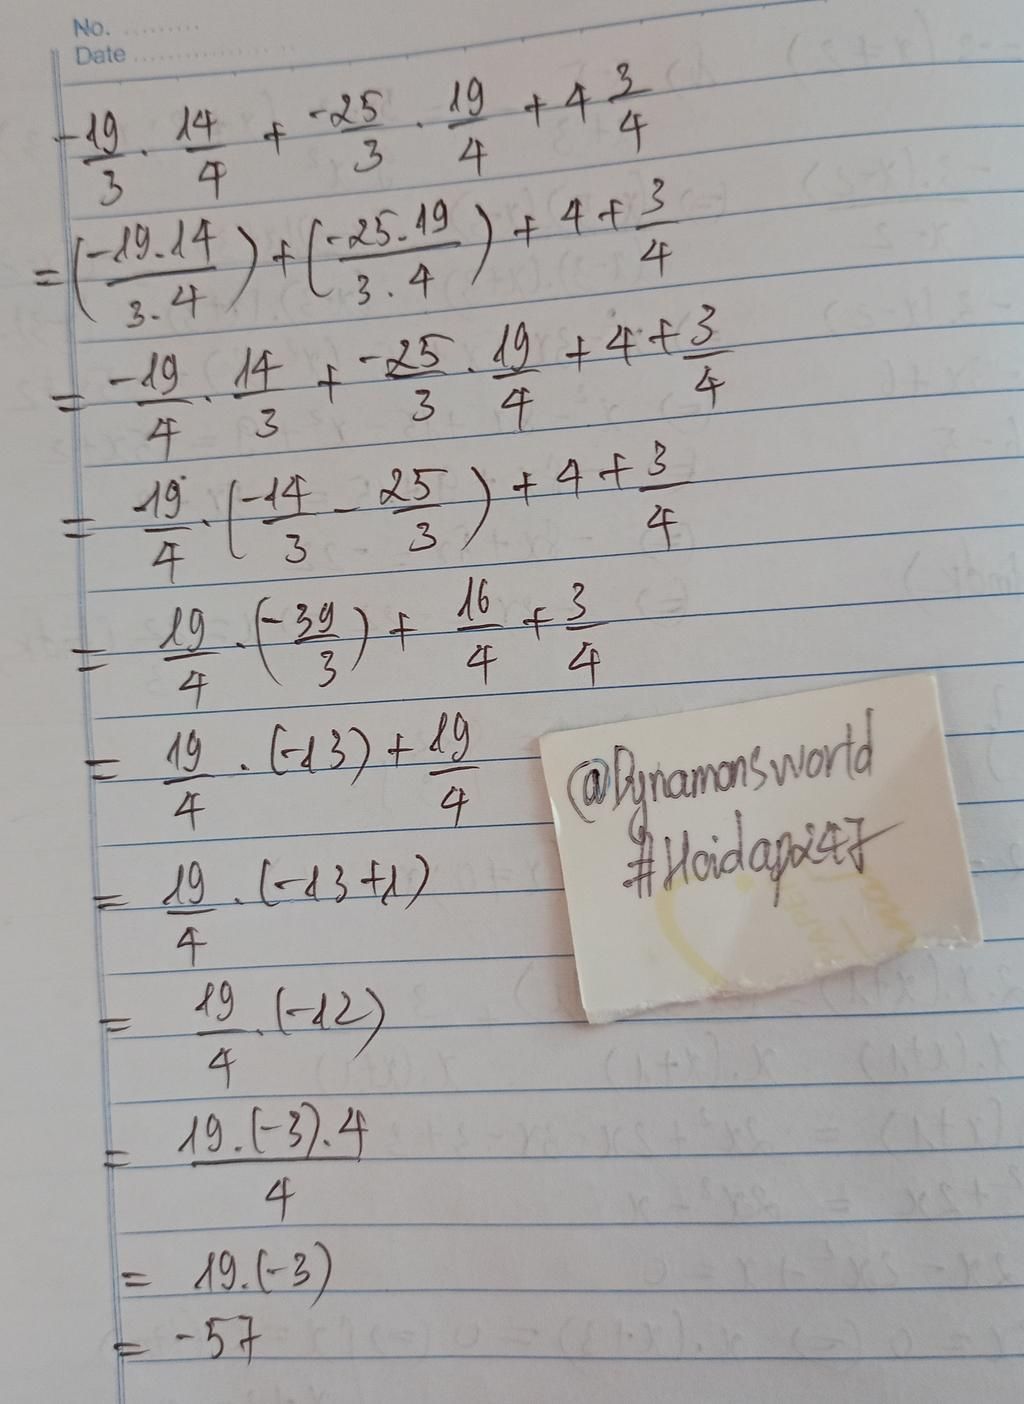 No. ........
Date ................
-19/3 . 14/4 + -25/3 . 19/4 + 4 3/4
= (-19.14/3.4) + (-25.19/3.4) + 4 + 3/4
= -19/4 . 14/3 + -25/3 . 19/4 + 4 + 3/4
= 19/4 . (-14/3 - 25/3) + 4 + 3/4
= 19/4 . (-39/3) + 16/4 + 3/4
= 19/4 . (-13) + 19/4
= 19/4 . (-13+1)
= 19/4 . (-12)
= 19.(-3).4/4
= 19.(-3)
= -57
@Dynamonsworld
#Hoidap247